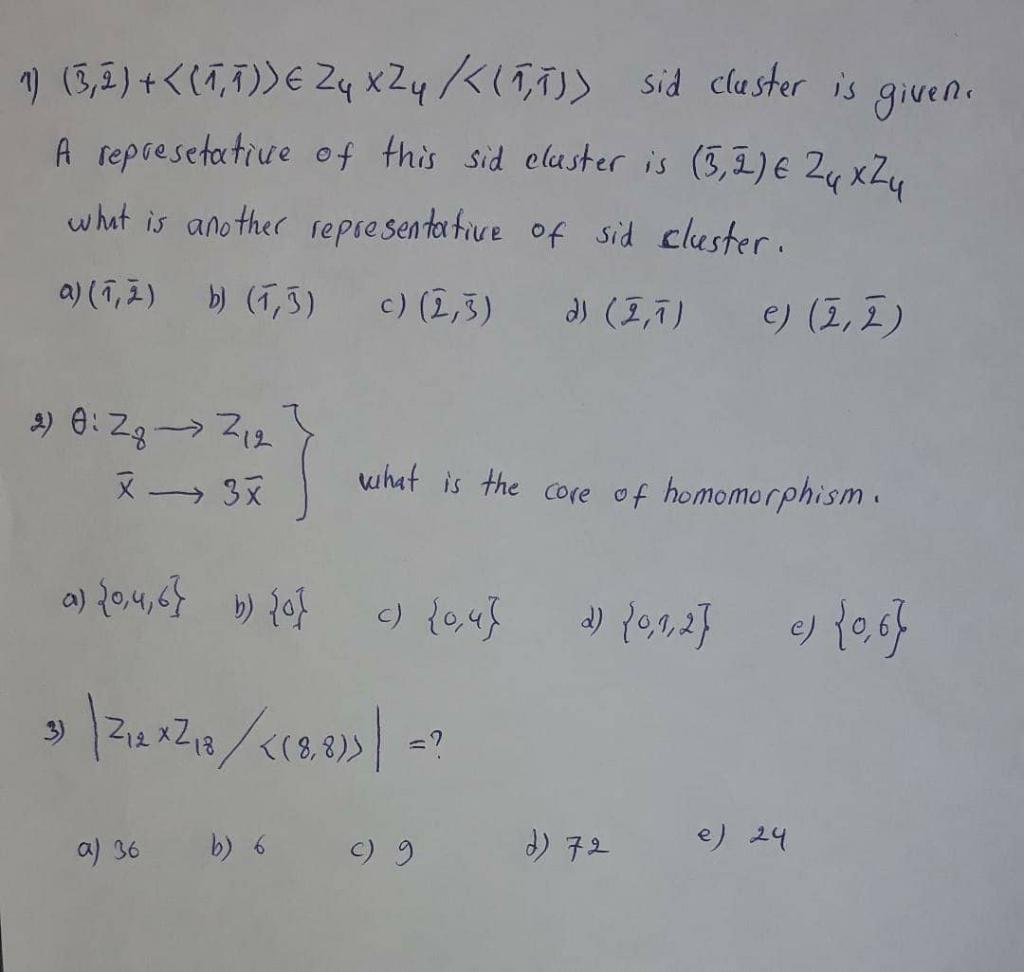 1) (3̄,2̄) + <(1̄,1̄)> ∈ Z₄ x Z₄ / <(1̄,1̄)> sid cluster is given.
A represetative of this sid cluster is (3̄,2̄) ∈ Z₄ x Z₄
what is another representative of sid cluster.
a) (1̄,2̄) b) (1̄,3̄) c) (2̄,3̄) d) (2̄,1̄) e) (2̄,2̄)
2) θ: Z₈ → Z₁₂ }
x̄ → 3x̄ what is the core of homomorphism.
a) {0,4,6} b) {0} c) {0,4} d) {0,1,2} e) {0,6}
3) |Z₁₂ x Z₁₈ / <(8,8)>| = ?
a) 36 b) 6 c) 9 d) 72 e) 24